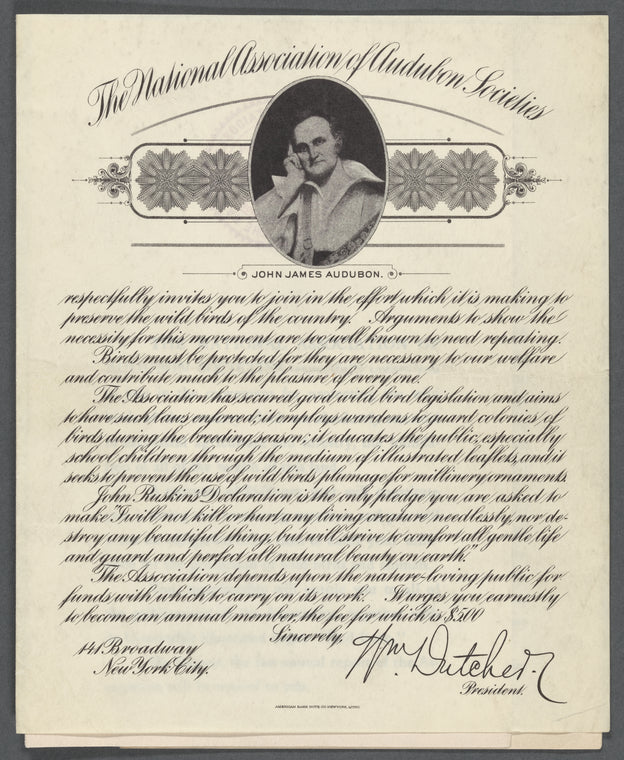 The National Association of Audubon Societies
JOHN JAMES AUDUBON.
respectfully invites you to join in the effort which it is making to
preserve the wild birds of the country. Arguments to show the
necessity for this movement are too well known to need repeating.
Birds must be protected for they are necessary to our welfare
and contribute much to the pleasure of every one.
The Association has secured good wild bird legislation and aims
to have such laws enforced; it employs wardens to guard colonies of
birds during the breeding season; it educates the public, especially
school children through the medium of illustrated leaflets, and it
seeks to prevent the use of wild birds plumage for millinery ornaments.
John Ruskin's Declaration is the only pledge you are asked to
make "I will not kill or hurt any living creature needlessly, nor de-
stroy any beautiful thing, but will strive to comfort all gentle life
and guard and perfect all natural beauty on earth."
The Association depends upon the nature-loving public for
funds with which to carry on its work. It urges you earnestly
to become an annual member, the fee for which is $5.00
Sincerely,
141 Broadway
New York City.
Wm. Dutcher.
President.
AMERICAN BANK NOTE CO. NEW YORK